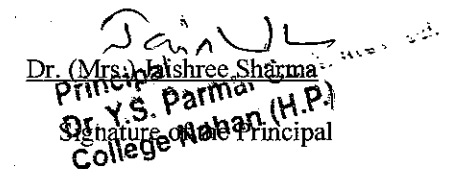 Dr. (Mrs.) Jaishree Sharma
Principal
Dr. Y.S. Parmar
College Nahan (H.P.)
Signature of the Principal